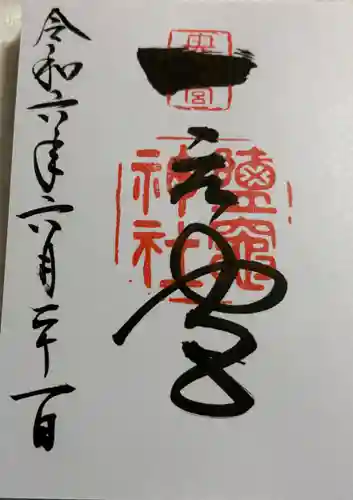 一之宮
鹽竈
神社
令和六年六月二十一日